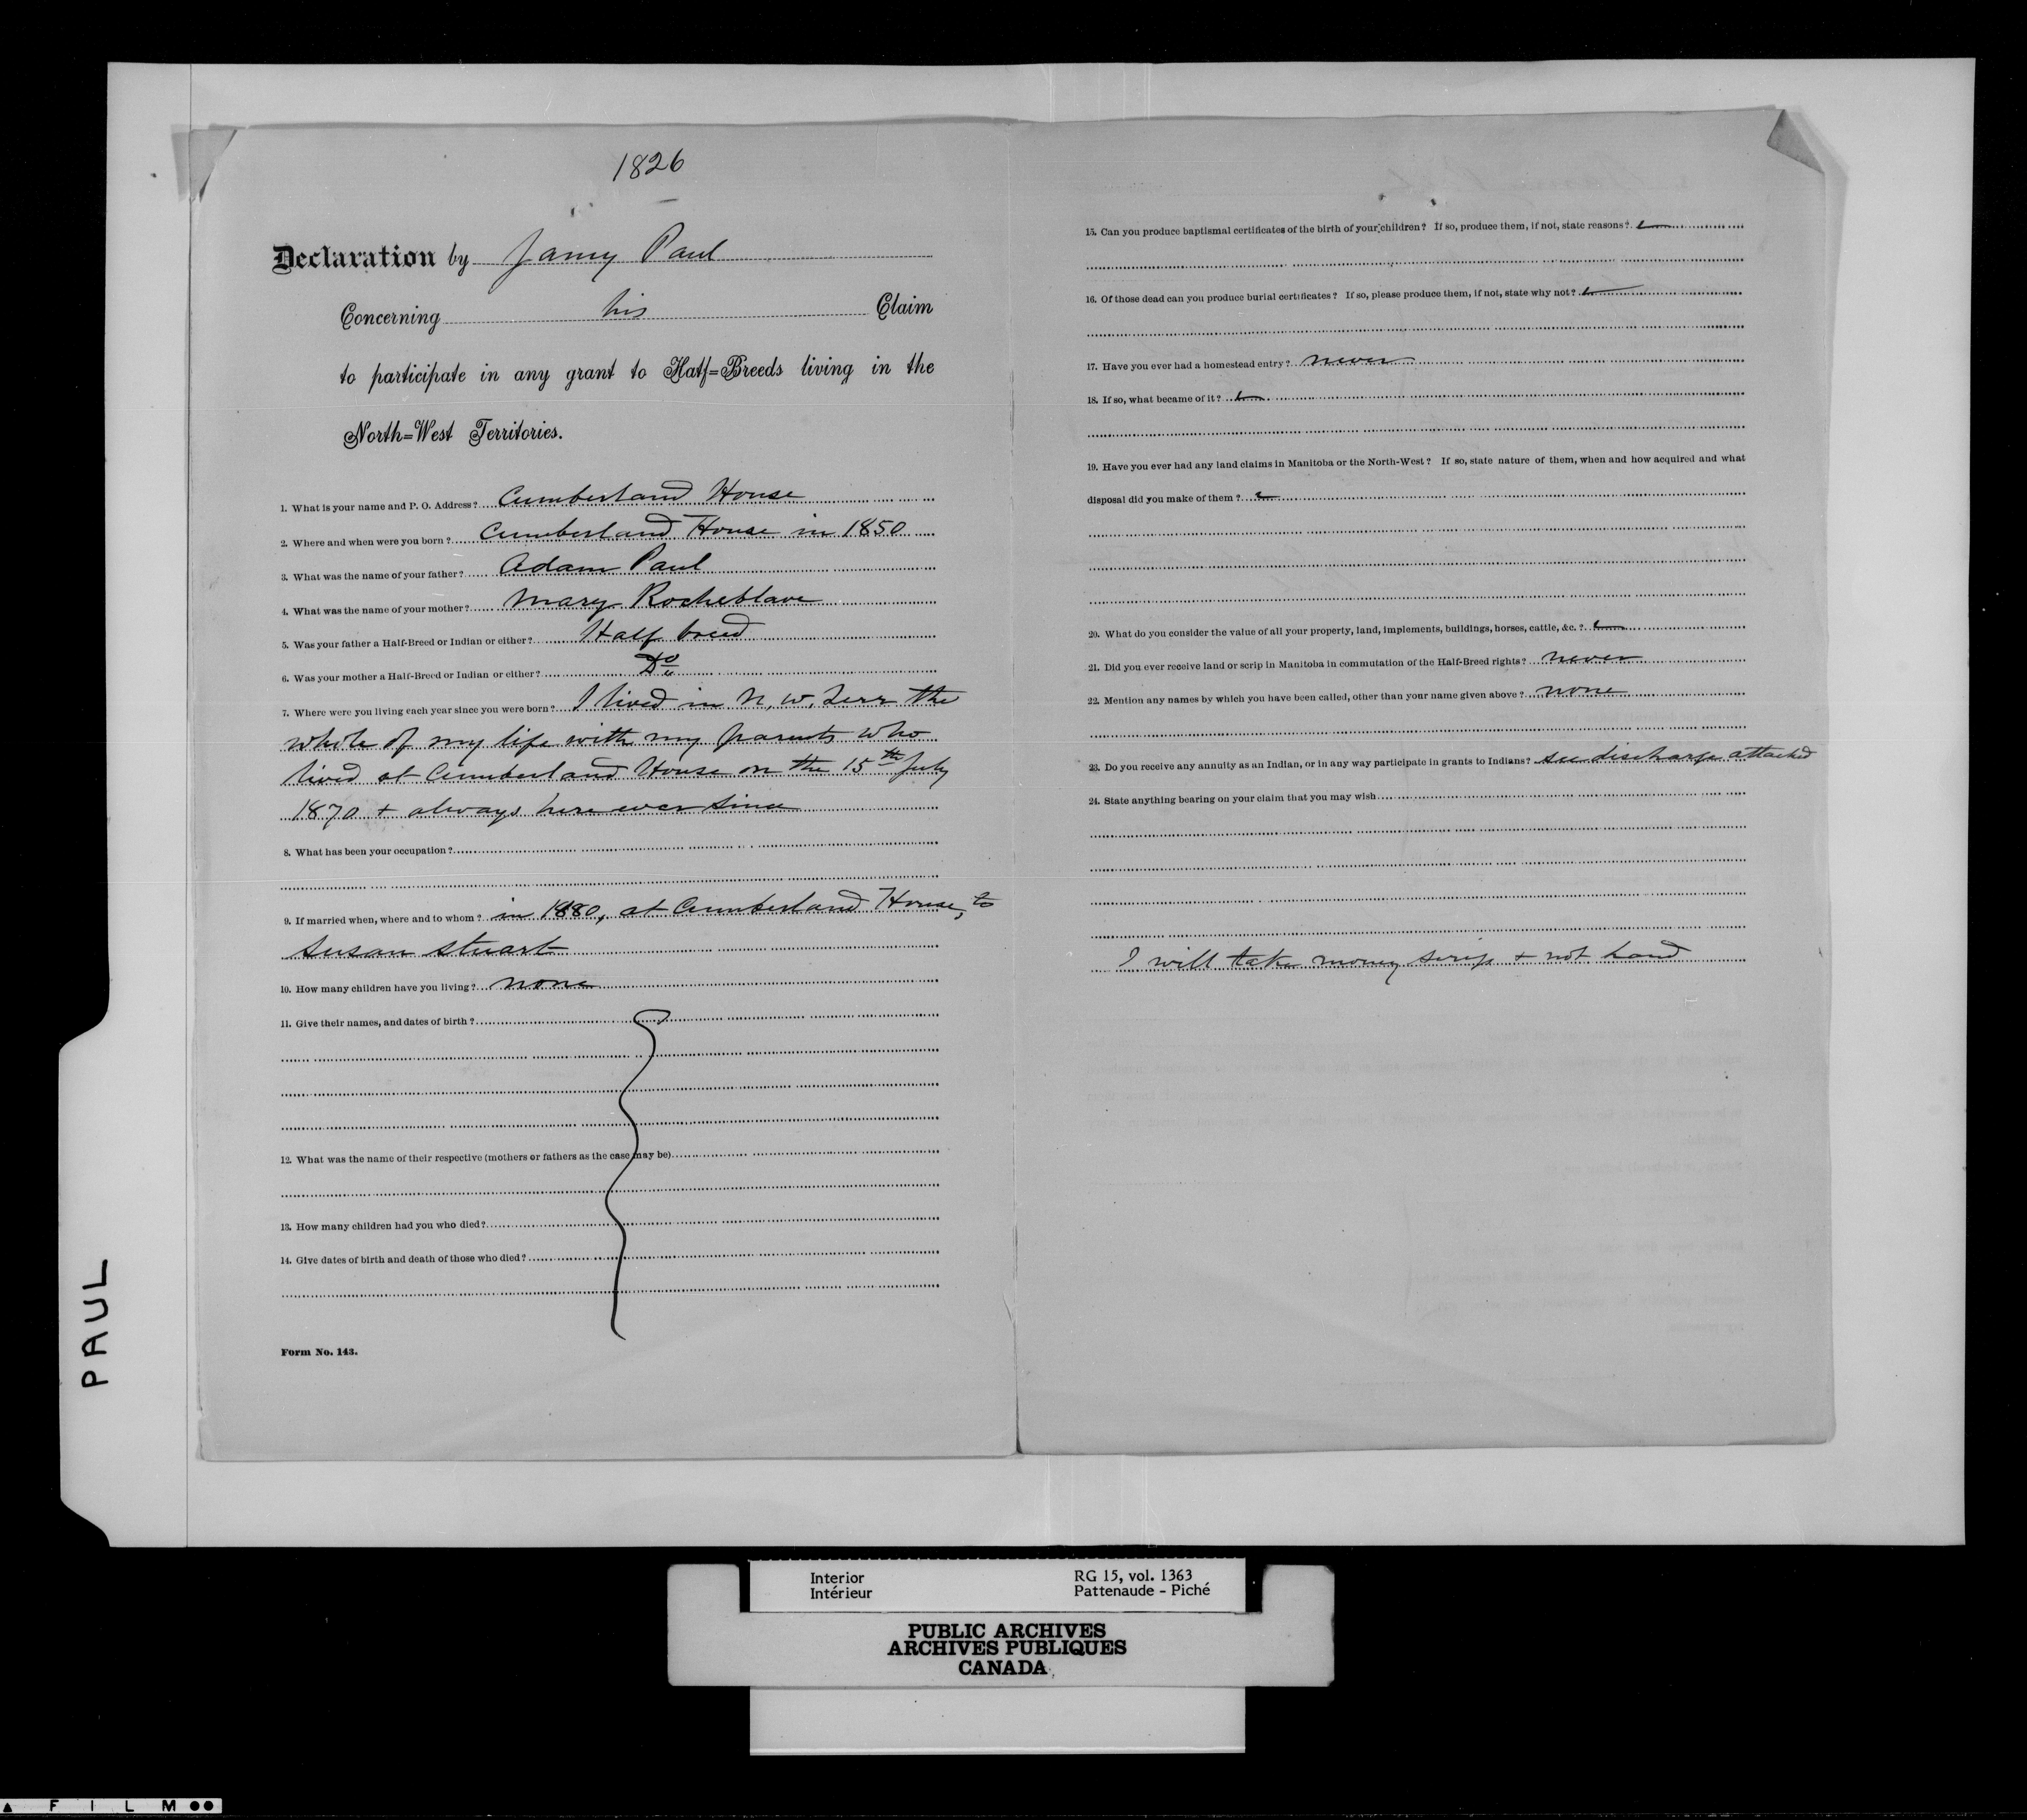 1826
Declaration by Jamy Paul
Concerning his Claim
to participate in any grant to Half=Breeds living in the
North=West Territories.
1. What is your name and P. O. Address? Cumberland House
2. Where and when were you born? Cumberland House in 1850
3. What was the name of your father? Adam Paul
4. What was the name of your mother? Mary Rocheblave
5. Was your father a Half-Breed or Indian or either? Half breed
6. Was your mother a Half-Breed or Indian or either? Do
7. Where were you living each year since you were born? I lived in N. W. Terr the
whole of my life with my parents who
lived at Cumberland House on the 15th July
1870 + always here ever since
8. What has been your occupation?
9. If married when, where and to whom? in 1880, at Cumberland House, to
Susan Stuart
10. How many children have you living? none
11. Give their names, and dates of birth?
12. What was the name of their respective (mothers or fathers as the case may be)
13. How many children had you who died?
14. Give dates of birth and death of those who died?
Form No. 143.
15. Can you produce baptismal certificates of the birth of your children? If so, produce them, if not, state reasons?
16. Of those dead can you produce burial certificates? If so, please produce them, if not, state why not?
17. Have you ever had a homestead entry? never
18. If so, what became of it?
19. Have you ever had any land claims in Manitoba or the North-West? If so, state nature of them, when and how acquired and what
disposal did you make of them?
20. What do you consider the value of all your property, land, implements, buildings, horses, cattle, &c.?
21. Did you ever receive land or scrip in Manitoba in commutation of the Half-Breed rights? never
22. Mention any names by which you have been called, other than your name given above? none
23. Do you receive any annuity as an Indian, or in any way participate in grants to Indians? see discharge attached
24. State anything bearing on your claim that you may wish
I will take money scrip + not land
PAUL
Interior
Intérieur
RG 15, vol. 1363
Pattenaude - Piché
PUBLIC ARCHIVES
ARCHIVES PUBLIQUES
CANADA
FILM